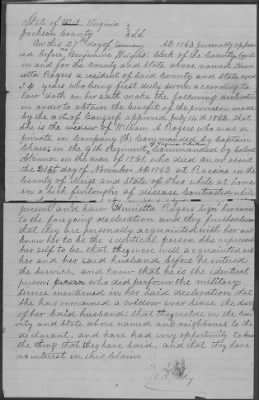 State of West Virginia
Jackson County } s.s.
On this 29 day of January AD 1863 personally appear
ed before Benjamine Wright Clerk of the County Court
in and for the County and State above named
Rogers a resident of said County and State aged
34 years who being first duly sworn according to
law doth on her oath make the following declaration
in order to obtain the benefit of the provision made
by the act of Congress approved July 14th 1862, that
she is the widow of William H. Rogers who was a
private in Company B. Commanded by Captain
in the 9th Regiment Commanded by
in the war of 1861 who died on or about
the 21st day of November AD 1863 at Racine in the
County of Meigs and State of Ohio while at home
on a sick furlough of disease Contracted while
present and saw Henrietta Rogers sign her name
to the foregoing declaration and they further swear
that they are personally acquainted with her and
know her to be the identical person she represents
her self to be that they were well acquainted with
her and her said husband before he entered
the service, and know that he is the identical
person who did perform the military
service mentioned in her said declaration that
she has remained a widow ever since the death
of her said husband: that they reside in the Coun
ty and State above named and neighbours to the
declarant, and have had every opportunity to know
the thing that they have said, and that they have
no interest in this Claim